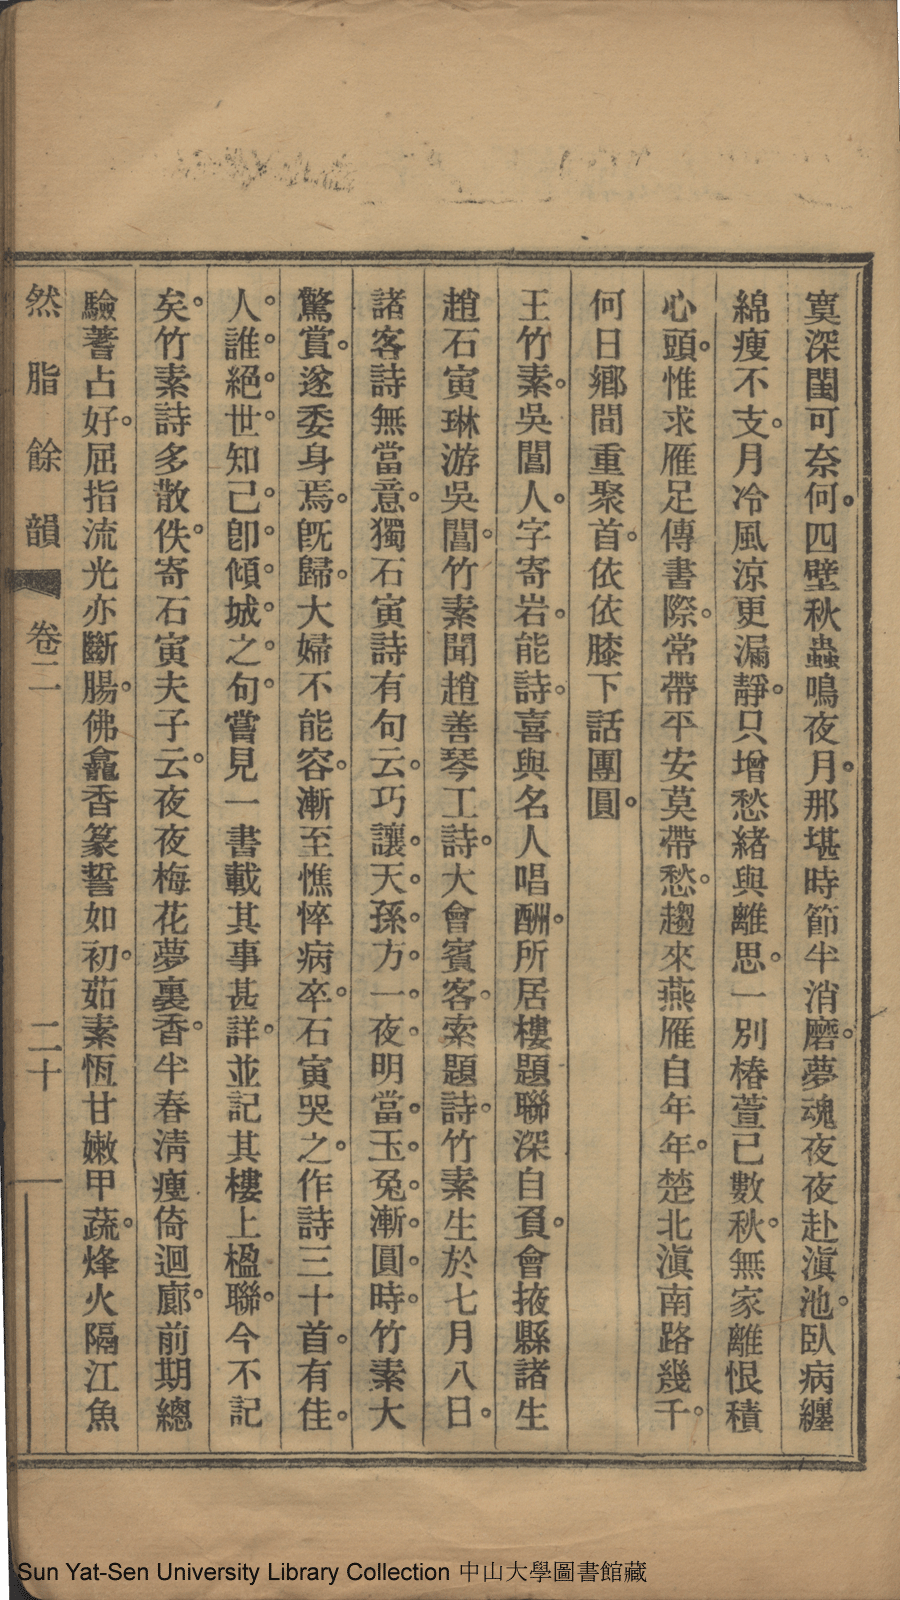 寞深閨可奈何。四壁秋蟲鳴夜月。那堪時節半消磨。夢魂夜夜赴滇池。臥病纏
綿瘦不支。月冷風涼更漏靜。只增愁緒與離思。一別椿萱已數秋。無家離恨積
心頭。惟求雁足傳書際。常帶平安莫帶愁。趨來燕雁自年年。楚北滇南路幾千。
何日鄉間重聚首。依依膝下話團圓。
王竹素。吳閶人。字寄岩。能詩。喜與名人唱酬。所居樓題聯深自負。會掖縣諸生
趙石寅琳游吳閶。竹素聞趙善琴工詩。大會賓客。索題詩。竹素生於七月八日。
諸客詩無當意。獨石寅詩有句云。巧讓天孫方一夜。明當玉兔漸圓時。竹素大
驚賞。遂委身焉。旣歸。大婦不能容。漸至憔悴病卒。石寅哭之。作詩三十首。有佳
人誰絕世知己卽傾城之句。嘗見一書載其事甚詳。並記其樓上楹聯。今不記
矣。竹素詩多散佚。寄石寅夫子云。夜夜梅花夢裏香。半春淸瘦倚迴廊。前期總
驗蓍占好。屈指流光亦斷腸。佛龕香篆誓如初。茹素恆甘嫩甲蔬。烽火隔江魚
然脂餘韻 卷二 二十
Sun Yat-Sen University Library Collection 中山大學圖書館藏